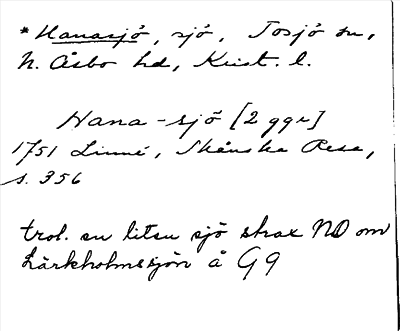 * Hanasjö, sjö, Tosjö sn,
N. Åsbo hd, Krist. l.
Hana-sjö [2 ggr]
1751 Linné, Skånska Resa,
s. 356
trol. en liten sjö strax NO om
Lärkholmssjön å G9